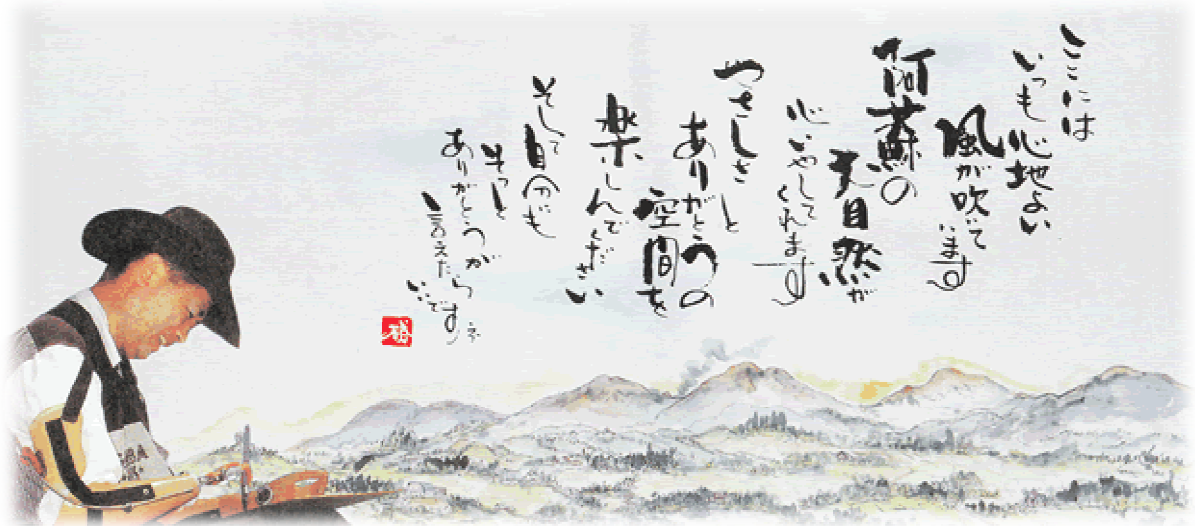 ここには
いつも心地よい
風が吹いています
阿蘇の
大自然が
心いやしてくれます
やさしさと
ありがとうの
空間を
楽しんでください
そして自分にも
そっと
ありがとうが
言えたら
いいですネ